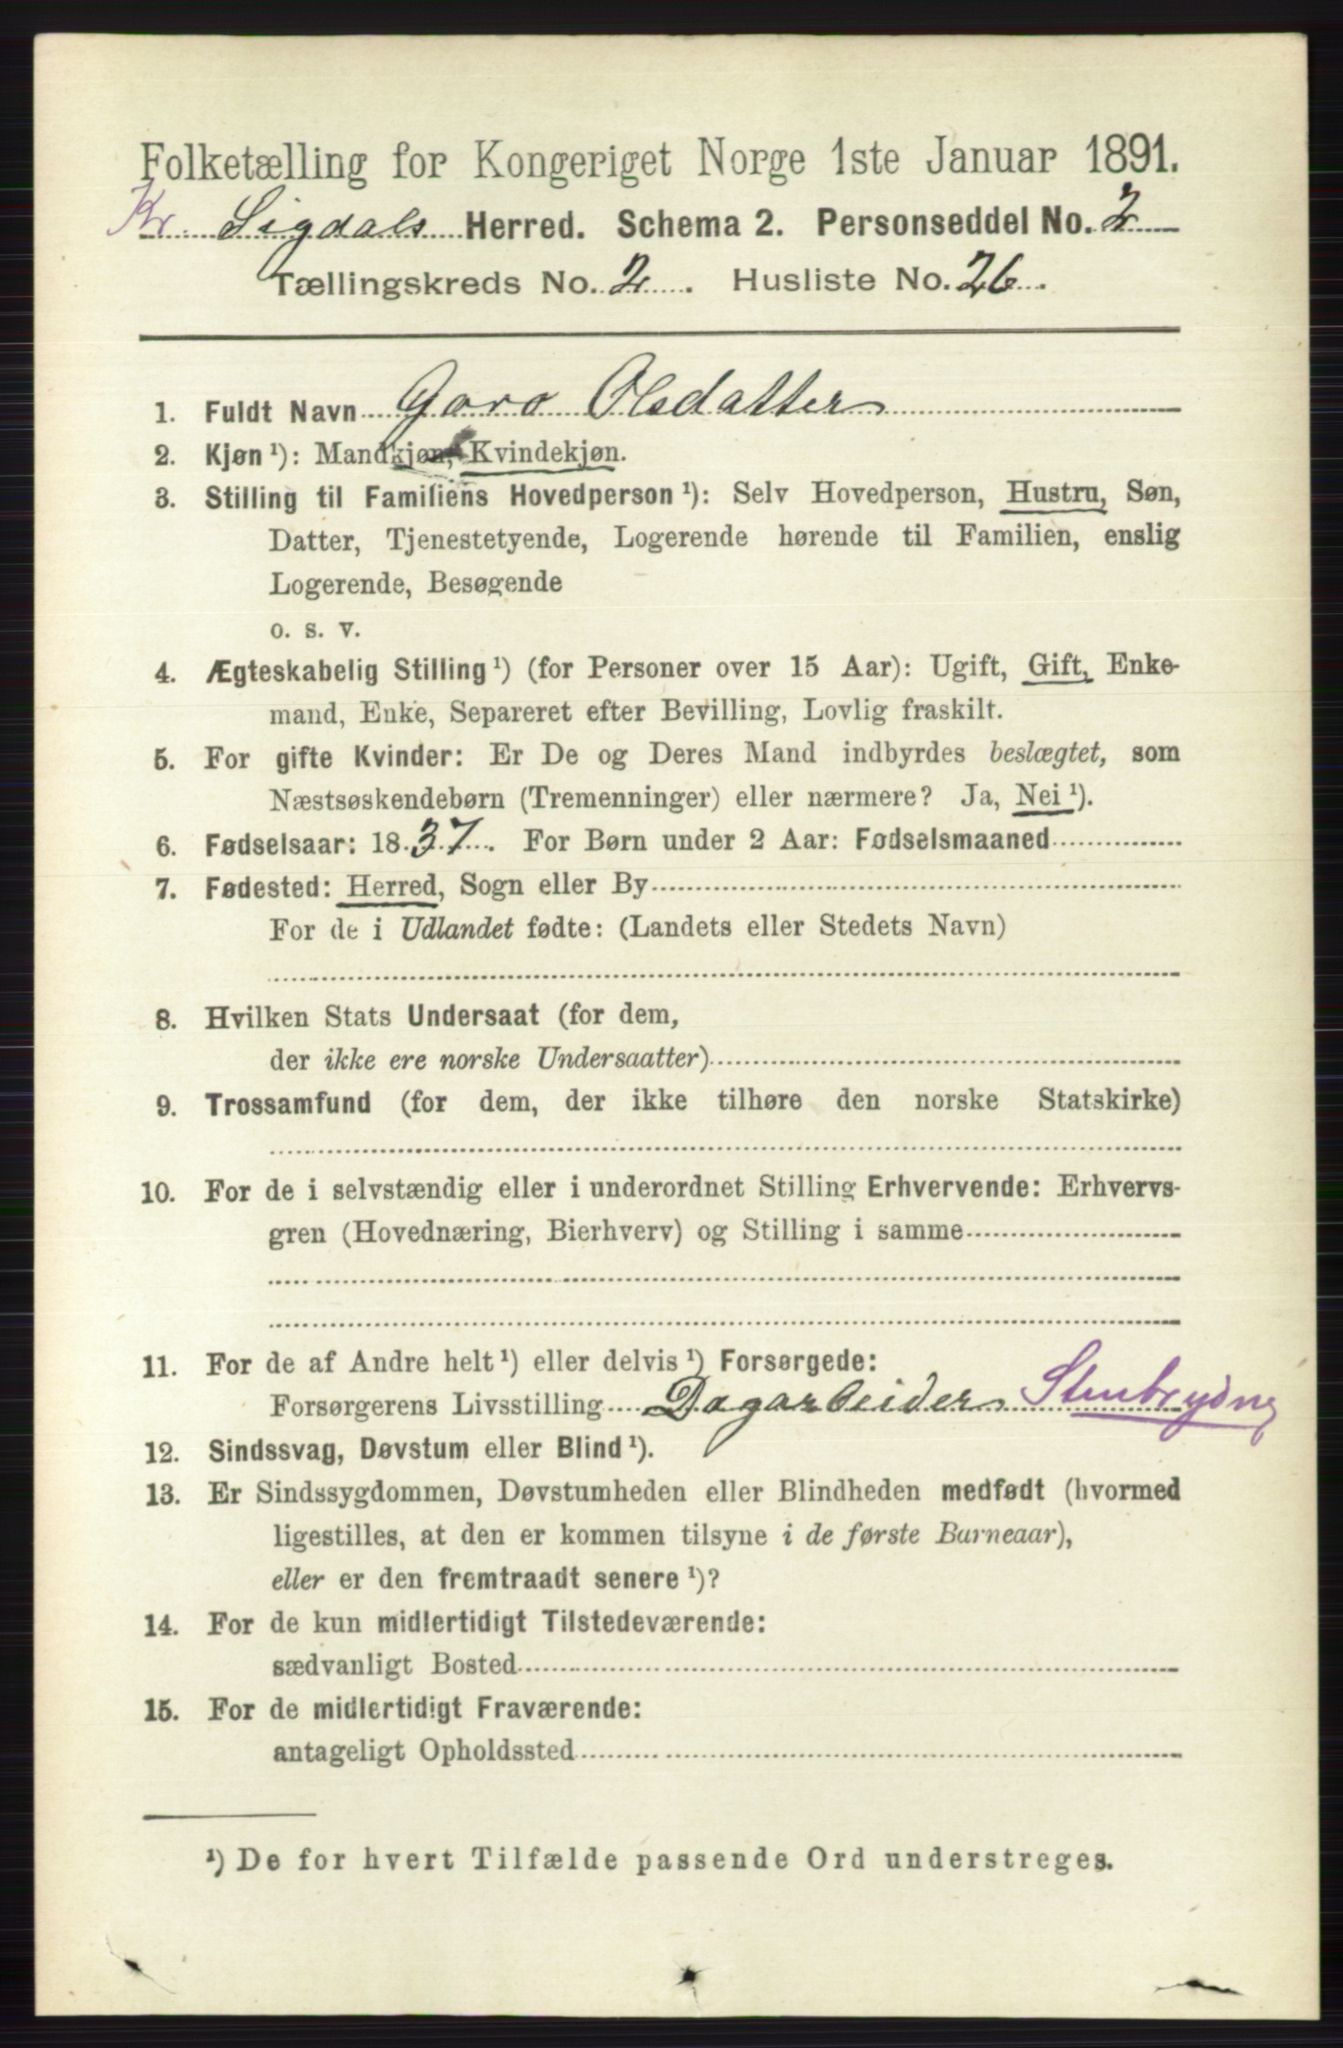 Folketælling for Kongeriget Norge 1ste Januar 1891.
Kr. Sigdals Herred. Schema 2. Personseddel No. 2
Tællingskreds No. 2. Husliste No. 26.
1. Fuldt Navn Goro Olsdatter
2. Kjøn ¹): Mandkjøn, Kvindekjøn.
3. Stilling til Familiens Hovedperson ¹): Selv Hovedperson, Hustru, Søn,
Datter, Tjenestetyende, Logerende hørende til Familien, enslig
Logerende, Besøgende
o. s. v.
4. Ægteskabelig Stilling ¹) (for Personer over 15 Aar): Ugift, Gift, Enke-
mand, Enke, Separeret efter Bevilling, Lovlig fraskilt.
5. For gifte Kvinder: Er De og Deres Mand indbyrdes beslægtet, som
Næstsøskendebørn (Tremenninger) eller nærmere? Ja, Nei ¹).
6. Fødselsaar: 1837. For Børn under 2 Aar: Fødselsmaaned
7. Fødested: Herred, Sogn eller By
For de i Udlandet fødte: (Landets eller Stedets Navn)
8. Hvilken Stats Undersaat (for dem,
der ikke ere norske Undersaatter)
9. Trossamfund (for dem, der ikke tilhøre den norske Statskirke)
10. For de i selvstændig eller i underordnet Stilling Erhvervende: Erhvervs-
gren (Hovednæring, Bierhverv) og Stilling i samme
11. For de af Andre helt ¹) eller delvis ¹) Forsørgede:
Forsørgerens Livsstilling Dagarbeider Stenbrydng
12. Sindssvag, Døvstum eller Blind ¹).
13. Er Sindssygdommen, Døvstumheden eller Blindheden medfødt (hvormed
ligestilles, at den er kommen tilsyne i de første Barneaar),
eller er den fremtraadt senere ¹)?
14. For de kun midlertidigt Tilstedeværende:
sædvanligt Bosted
15. For de midlertidigt Fraværende:
antageligt Opholdssted
¹) De for hvert Tilfælde passende Ord understreges.